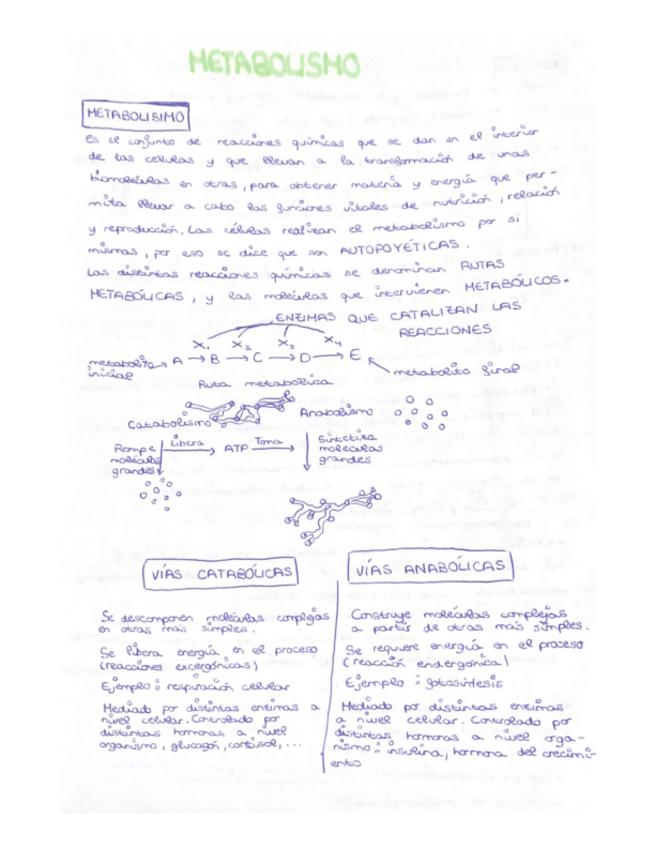 METABOLISMO
METABOLISIMO
Es el conjunto de reacciones químicas que se dan en el interior
de las células y que llevan a la transformación de unas
biomoléculas en otras, para obtener materia y energía que per-
mita llevar a cabo las funciones vitales de nutrición, relación
y reproducción. Las células realizan el metabolismo por si
mismas, por eso se dice que son AUTOPOYÉTICAS.
Las distintas reacciones químicas se denominan RUTAS
METABÓLICAS, y las moléculas que intervienen METABÓLICOS.
ENZIMAS QUE CATALIZAN LAS
REACCIONES
X₁ X₂ X₃ X₄
metabolito inicial → A → B → C → D → E
metabolito final
Ruta metabólica
Catabolismo
Anabolismo
Rompe moléculas grandes
Libera
ATP
Toma
Sintetiza
moléculas
grandes
VÍAS CATABÓLICAS
Se descomponen moléculas complejas
en otras más simples.
Se libera energía en el proceso
(reacciones excergónicas)
Ejemplo: respiración celular
Mediado por distintas enzimas a
nivel celular. Controlado por
distintas hormonas a nivel
organismo, glucagón, cortisol, ...
VÍAS ANABÓLICAS
Construye moléculas complejas
a partir de otras más simples.
Se requiere energía en el proceso
(reacción endergónica)
Ejemplo: fotosíntesis
Mediado por distintas enzimas
a nivel celular. Controlado por
distintas hormonas a nivel orga-
nismo: insulina, hormona del crecimi-
ento